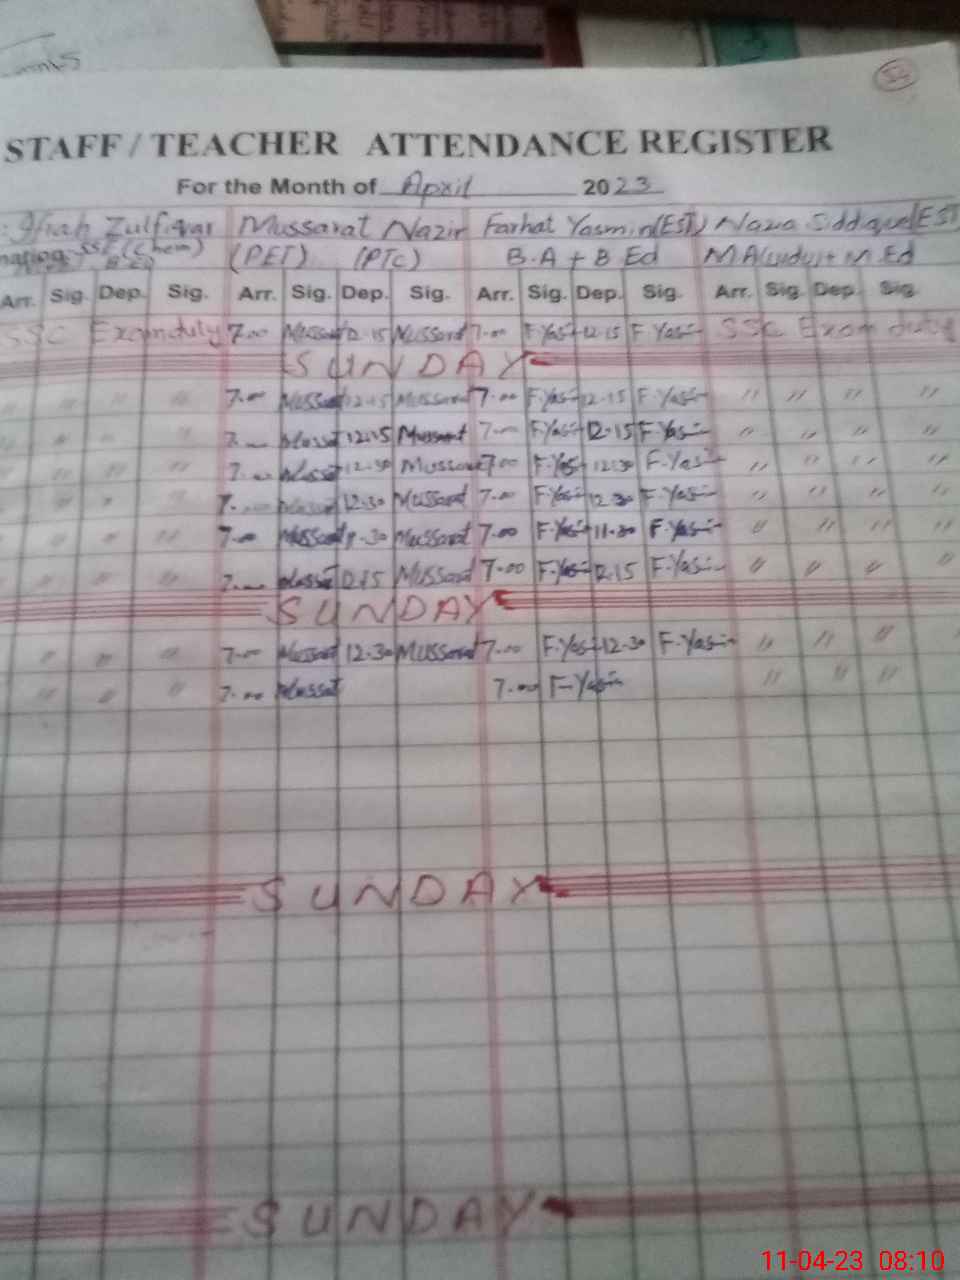 54
STAFF / TEACHER ATTENDANCE REGISTER
For the Month of April 2023
Zulfiqar Mussarat Nazir Farhat Yasmin (EST) Siddique (EST)
SST (Chem) (PET) (PTC) B.A + B Ed M A (urdu) + M Ed
Arr. Sig. Dep. Sig. Arr. Sig. Dep. Sig. Arr. Sig. Dep. Sig. Arr. Sig. Dep. Sig
SSC Exam duty 7.00 Mussarat 12.15 Mussarat 7.00 F.Yasmin 12.15 F Yasmin SSC Exam duty
SUNDAY
" " " " 7.00 Mussarat 12.15 Mussarat 7.00 F.Yasmin 12.15 F.Yasmin " " " "
" " " " 7.00 Mussarat 12.15 Mussarat 7.00 F.Yasmin 12.15 F.Yasmin " " " "
" " " " 7.00 Mussarat 12.30 Mussarat 7.00 F.Yasmin 12.30 F.Yasmin " " " "
" " " " 7.00 Mussarat 12.30 Mussarat 7.00 F.Yasmin 12.30 F.Yasmin " " " "
" " " " 7.00 Mussarat Mussarat 7.00 F.Yasmin 11.30 F.Yasmin " " " "
" " " " 7.00 Mussarat 12.15 Mussarat 7.00 F.Yasmin 12.15 F.Yasmin " " " "
SUNDAY
" " " 7.00 Mussarat 12.30 Mussarat 7.00 F.Yasmin 12.30 F.Yasmin " " "
" " " 7.00 Mussarat 7.00 F.Yasmin " " "
SUNDAY
SUNDAY
11-04-23 08:10